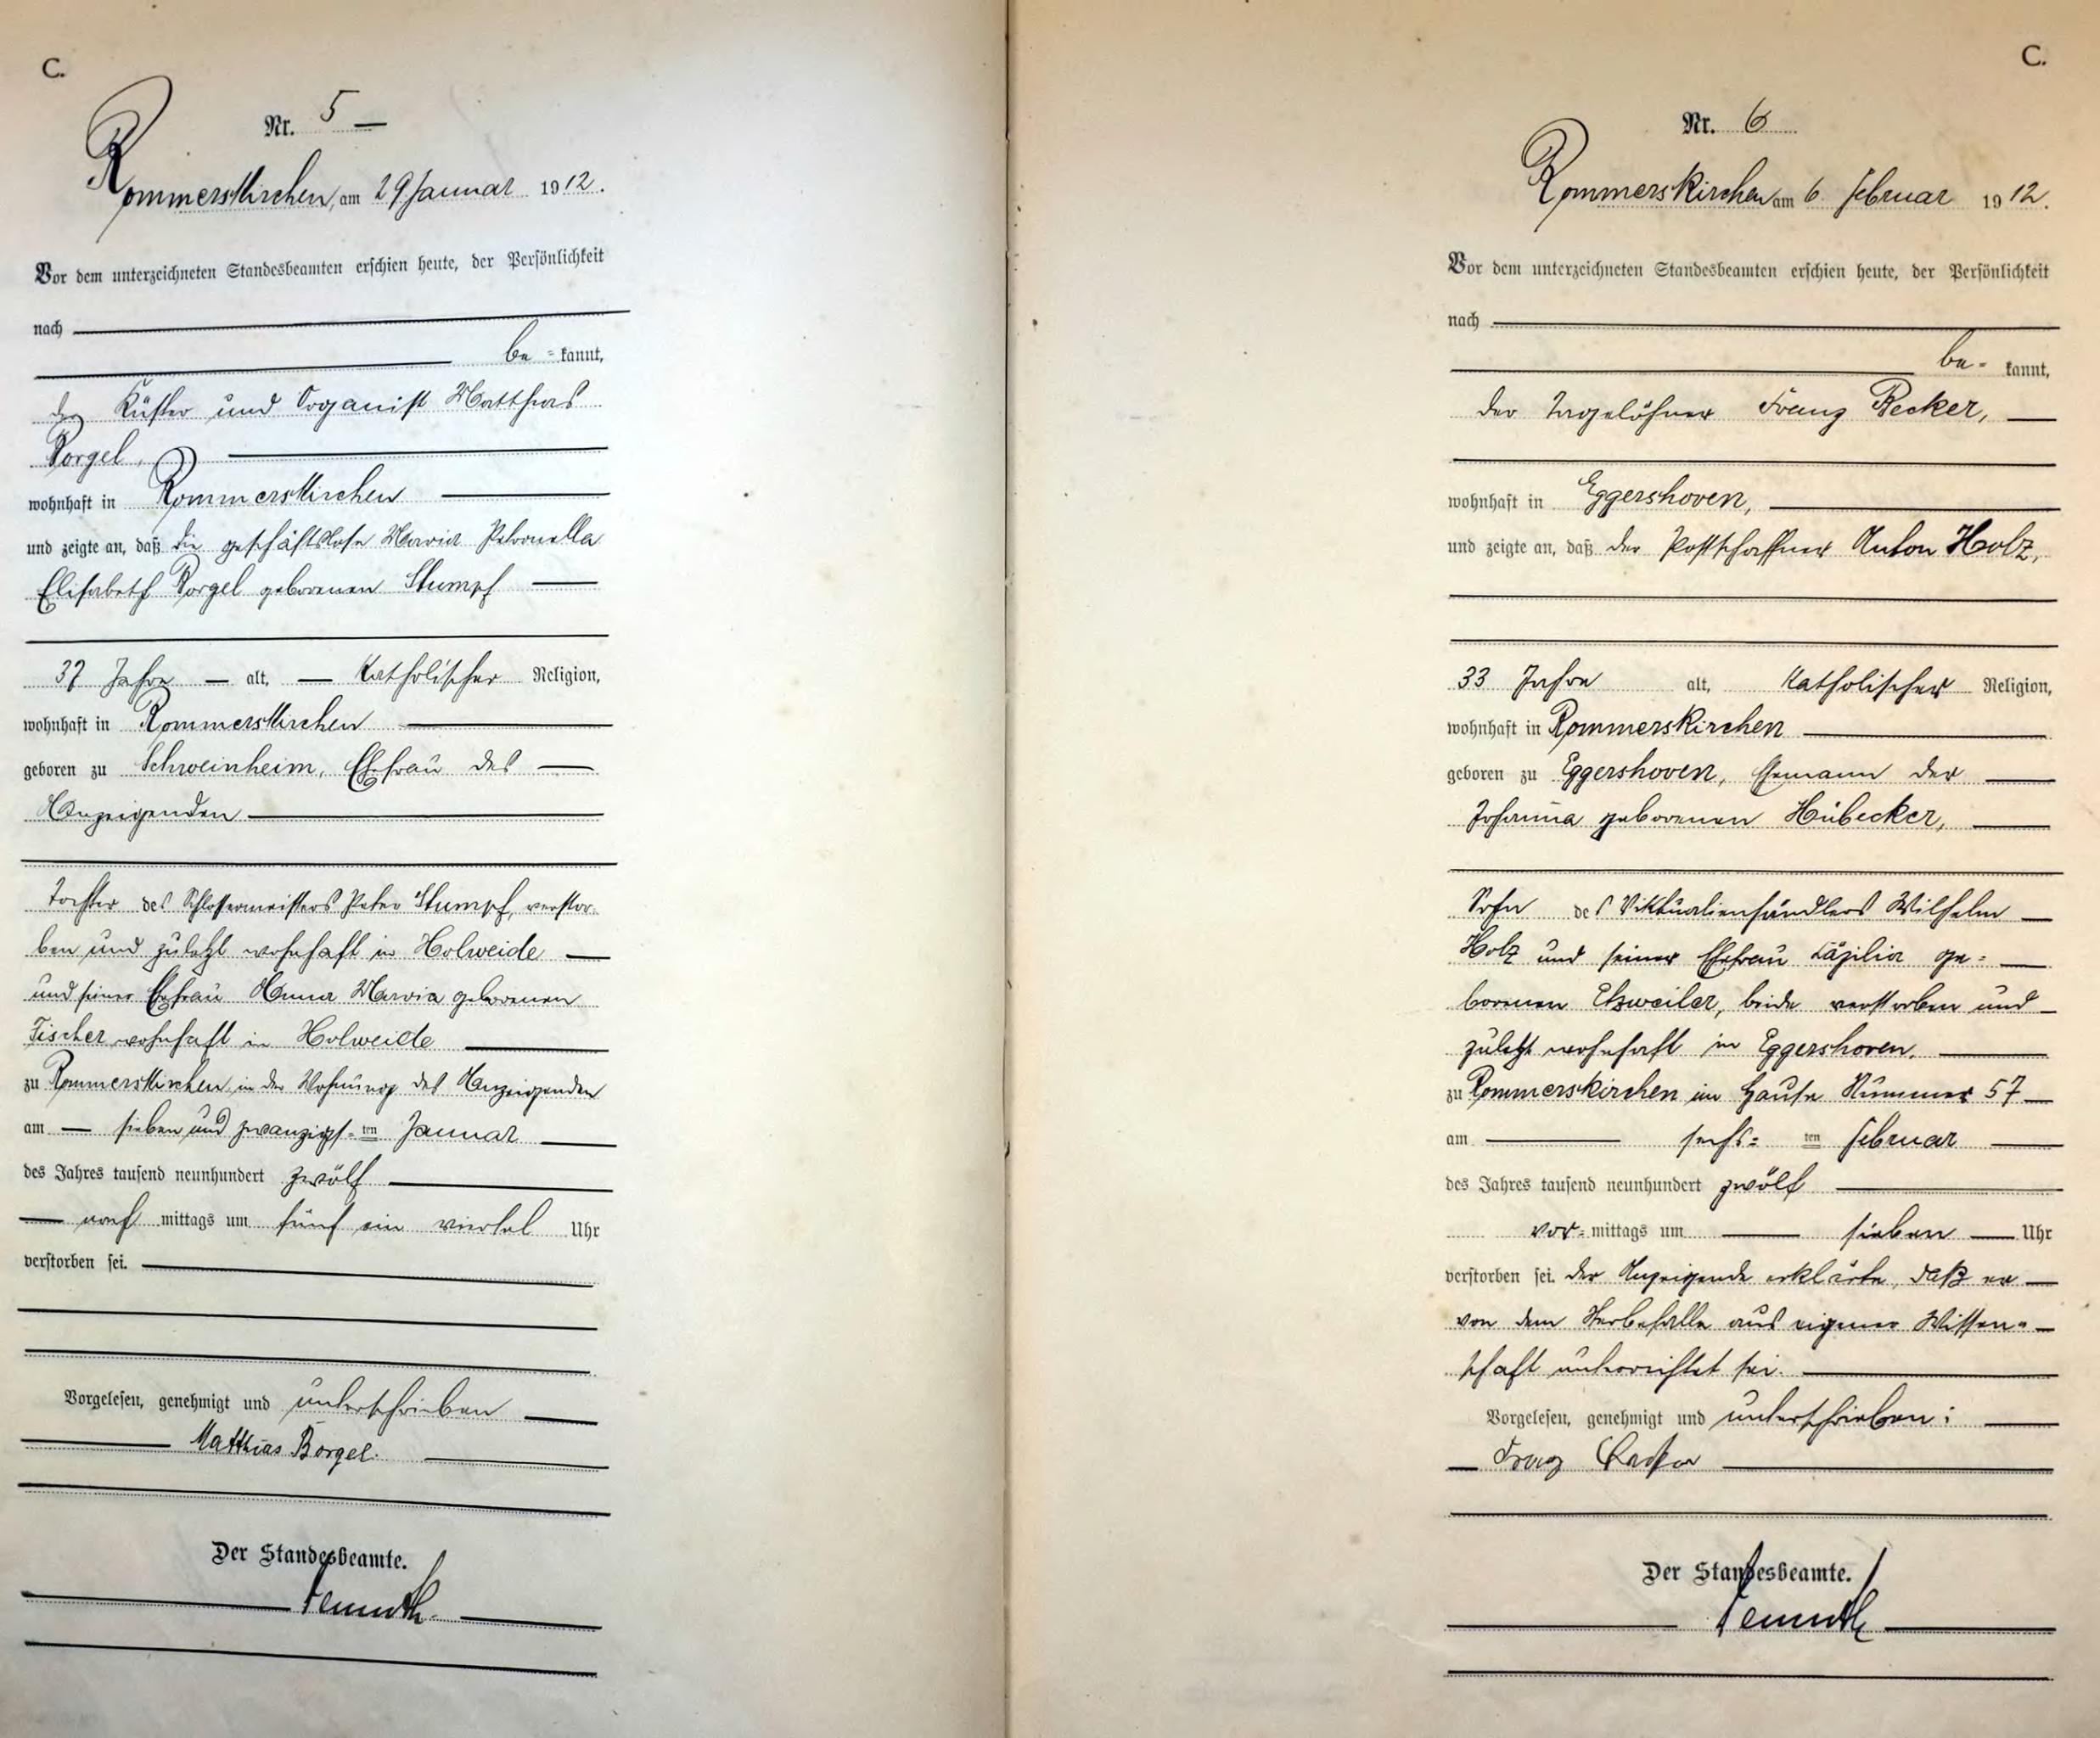 C.
Nr. 5
Rommerskirchen, am 29 Januar 1912.
Vor dem unterzeichneten Standesbeamten erschien heute, der Persönlichkeit
nach
be = kannt,
der Küster und Organist Matthias
Borgel,
wohnhaft in Rommerskirchen
und zeigte an, daß die geschäftslose Maria Petronella
Elisabeth Borgel geborenen Stumpf
37 Jahre alt, katholischer Religion,
wohnhaft in Rommerskirchen
geboren zu Schweinheim, Ehefrau des
Anzeigenden
Tochter des Schlossermeisters Peter Stumpf, verstor-
ben und zuletzt wohnhaft in Holweide
und seiner Ehefrau Anna Maria geborenen
Fischer wohnhaft in Holweide
zu Rommerskirchen in der Wohnung des Anzeigenden
am sieben und zwanzigst=ten Januar
des Jahres tausend neunhundert zwölf
nach mittags um fünf ein viertel Uhr
verstorben sei.
Vorgelesen, genehmigt und unterschrieben
Matthias Borgel.
Der Standesbeamte.
C.
Nr. 6
Rommerskirchen am 6. Februar 1912.
Vor dem unterzeichneten Standesbeamten erschien heute, der Persönlichkeit
nach
be= kannt,
der Tagelöhner Franz Becker,
wohnhaft in Eggershoven,
und zeigte an, daß der Postschaffner Anton Holz,
33 Jahre alt, katholischer Religion,
wohnhaft in Rommerskirchen
geboren zu Eggershoven, Ehemann der
Johanna geborenen Hübecker,
Sohn des Viktualienhändlers Wilhelm
Holz und seiner Ehefrau Cäzilia ge=
borenen Etzweiler, beide verstorben und
zuletzt wohnhaft in Eggershoven.
zu Rommerskirchen im Hause Nummer 57
am sechs= ten Februar
des Jahres tausend neunhundert zwölf
vor= mittags um sieben Uhr
verstorben sei. Der Anzeigende erklärte, daß er
von dem Sterbefalle aus eigener Wissen=
schaft unterrichtet sei.
Vorgelesen, genehmigt und unterschrieben:
Franz Becker
Der Standesbeamte.